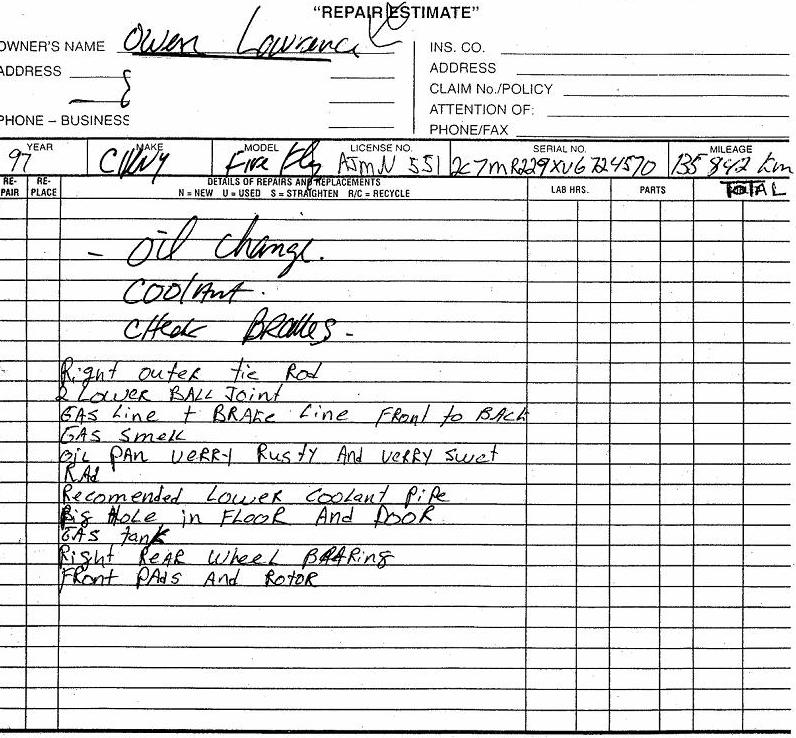 "REPAIR ESTIMATE"
OWNER'S NAME Owen Lowrance
ADDRESS
PHONE – BUSINESS
INS. CO.
ADDRESS
CLAIM No./POLICY
ATTENTION OF:
PHONE/FAX
YEAR MAKE MODEL LICENSE NO. SERIAL NO. MILEAGE
97 Chvy Fire Fly AJMN 551 2C7MR229XV6724570 135 842 km
RE-PAIR RE-PLACE DETAILS OF REPAIRS AND REPLACEMENTS LAB HRS. PARTS TOTAL
N = NEW U = USED S = STRAIGHTEN R/C = RECYCLE
- oil change.
COOlAnt.
CHeck BRAkes -
Right outer tie Rod
2 Lower BALL Joint
GAS Line + BRAKe Line FRont to BACK
GAS Smell
oil PAN VERRY RustY And VERRY Swet
RAd
Recomended Lower Coolant Pipe
Big Hole in FLOOR And DOOR
GAS tank
Right ReAR Wheel BeARing
FRont PAds And RotoR